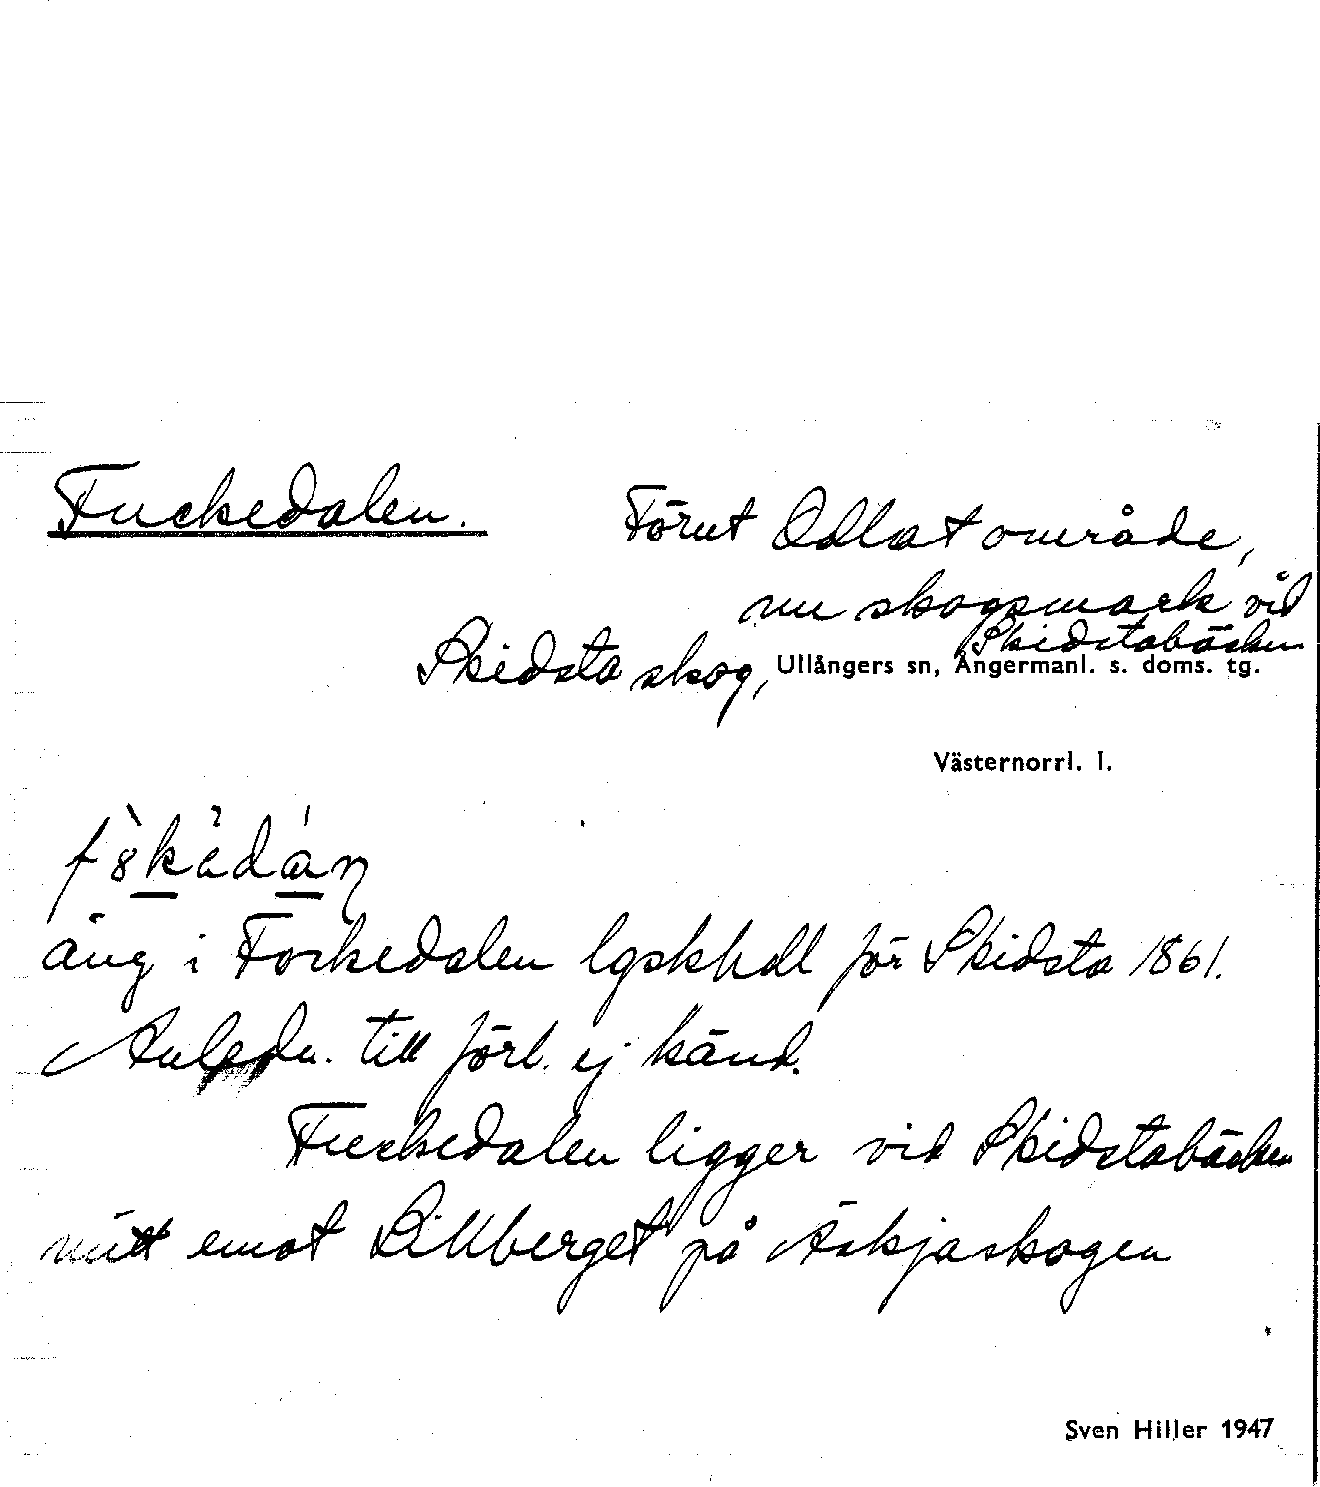 Fuckedalen. Förut Odlat område,
nu skogsmark vid
Skidstabäcken
Skidsta skog, Ullångers sn, Ångermanl. s. doms. tg.
Västernorrl. l.
äng i Fockedalen lgskhdl för Skidsta 1861.
Anledn. till förl. ej känd.
Fuckedalen ligger vid Skidstabäcken
mitt emot Lillberget på Äskjaskogen
Sven Hiller 1947